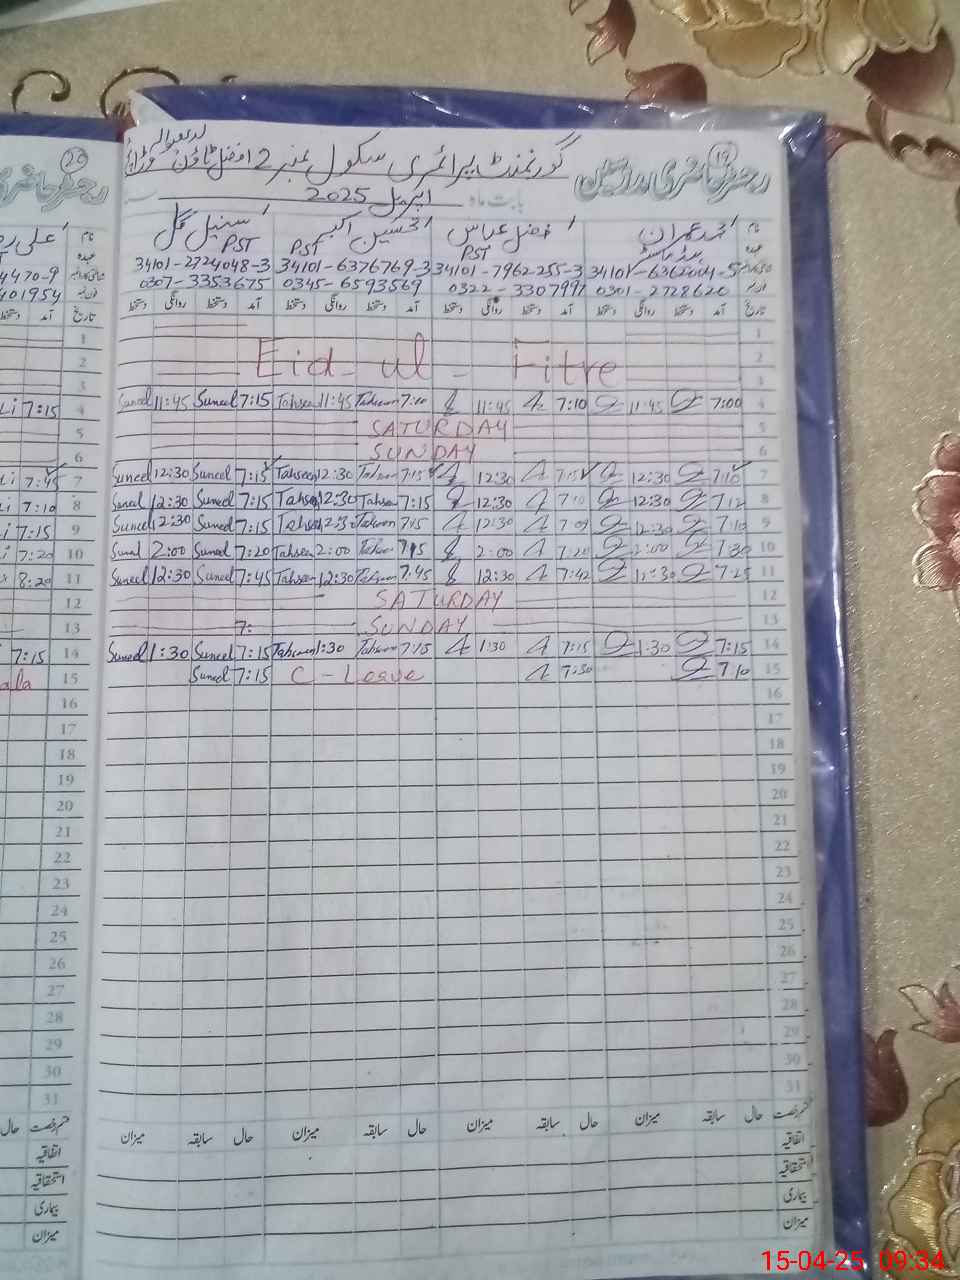 رجسٹر حاضری مدرسین
19
گورنمنٹ پرائمری سکول نمبر 2 افضل ٹاؤن
بابت ماہ اپریل 2025
نام محمد عمران فضل عباس تحسین اکبر سنیل گل
عہدہ PST PST PST
34101-7962255-3 34101-6376769-3 34101-2724048-3
0301-2728620 0322-3307991 0345-6593569 0307-3353675
تاریخ آمد دستخط روانگی دستخط آمد دستخط روانگی دستخط آمد دستخط روانگی دستخط آمد دستخط روانگی دستخط
1
2 Eid-ul-Fitre
3
Suneel 11:45 Suneel 7:15 Tahseen 11:45 Tahseen 7:10 11:45 7:10 11:45 7:00 4
SATURDAY 5
SUNDAY 6
Suneel 12:30 Suneel 7:15 Tahseen 12:30 Tahseen 7:15 12:30 7:15 12:30 7:10 7
Suneel 12:30 Suneel 7:15 Tahseen 12:30 Tahseen 7:15 12:30 7:10 12:30 7:12 8
Suneel 12:30 Suneel 7:15 Tahseen 12:30 Tahseen 7:15 12:30 7:09 12:30 7:10 9
Suneel 2:00 Suneel 7:20 Tahseen 2:00 Tahseen 7:15 2:00 7:20 2:00 7:30 10
Suneel 12:30 Suneel 7:45 Tahseen 12:30 Tahseen 7:45 12:30 7:42 12:30 7:25 11
SATURDAY 12
7: SUNDAY 13
Suneel 1:30 Suneel 7:15 Tahseen 1:30 Tahseen 7:15 1:30 7:15 1:30 7:15 14
Suneel 7:15 C-Leave 7:30 7:10 15
16
17
18
19
20
21
22
23
24
25
26
27
28
29
30
31
قسم رخصت حال سابقہ میزان حال سابقہ میزان حال سابقہ میزان حال سابقہ میزان
اتفاقیہ
استحقاقیہ
بیماری
میزان
20
رجسٹر حاضری
علی
4470-9
401954
تاریخ آمد دستخط
1
2
3
7:15 4
5
6
7:45 7
7:10 8
7:15 9
7:20 10
8:20 11
12
13
7:15 14
ala 15
16
17
18
19
20
21
22
23
24
25
26
27
28
29
30
31
قسم رخصت حال
اتفاقیہ
استحقاقیہ
بیماری
میزان
15-04-25 09:34